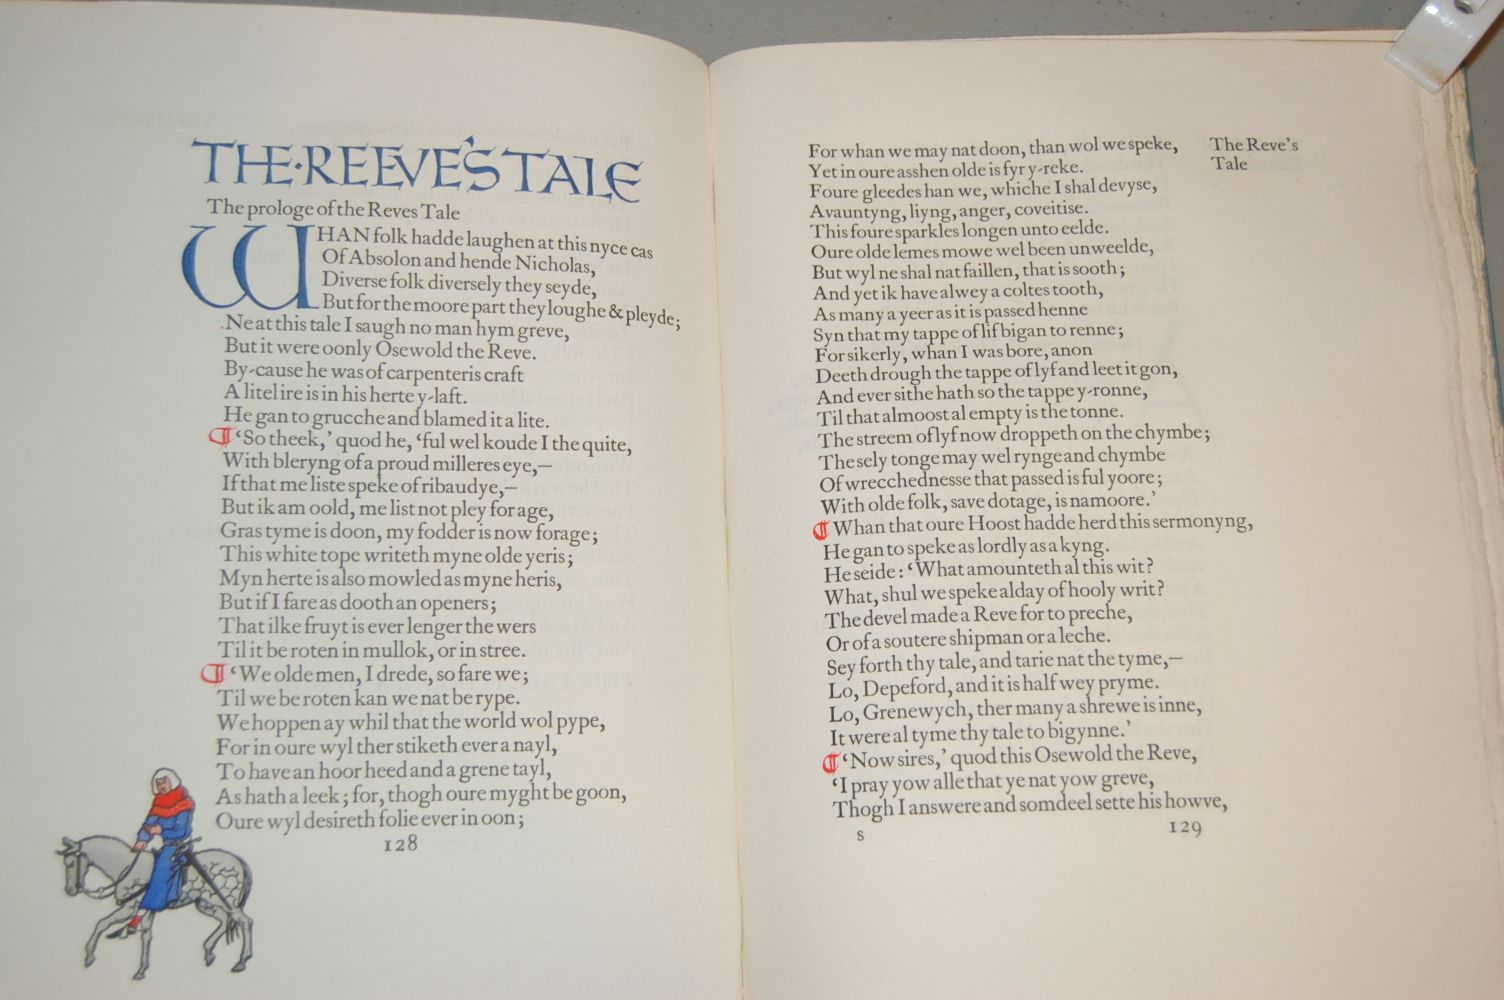 THE·REEVE'S TALE
The prologe of the Reves Tale
WHAN folk hadde laughen at this nyce cas
Of Absolon and hende Nicholas,
Diverse folk diversely they seyde,
But for the moore part they loughe & pleyde;
Ne at this tale I saugh no man hym greve,
But it were oonly Osewold the Reve.
By-cause he was of carpenteris craft
A litel ire is in his herte y-laft.
He gan to grucche and blamed it a lite.
¶ ‘So theek,’ quod he, ‘ful wel koude I the quite,
With bleryng of a proud milleres eye,—
If that me liste speke of ribaudye,—
But ik am oold, me list not pley for age,
Gras tyme is doon, my fodder is now forage;
This white tope writeth myne olde yeris;
Myn herte is also mowled as myne heris,
But if I fare as dooth an openers;
That ilke fruyt is ever lenger the wers
Til it be roten in mullok, or in stree.
¶ ‘We olde men, I drede, so fare we;
Til we be roten kan we nat be rype.
We hoppen ay whil that the world wol pype,
For in oure wyl ther stiketh ever a nayl,
To have an hoor heed and a grene tayl,
As hath a leek; for, thogh oure myght be goon,
Oure wyl desireth folie ever in oon;
128
For whan we may nat doon, than wol we speke,
Yet in oure asshen olde is fyr y-reke.
Foure gleedes han we, whiche I shal devyse,
Avauntyng, liyng, anger, coveitise.
This foure sparkles longen unto eelde.
Oure olde lemes mowe wel been unweelde,
But wyl ne shal nat faillen, that is sooth;
And yet ik have alwey a coltes tooth,
As many a yeer as it is passed henne
Syn that my tappe of lif bigan to renne;
For sikerly, whan I was bore, anon
Deeth drough the tappe of lyf and leet it gon,
And ever sithe hath so the tappe y-ronne,
Til that almoost al empty is the tonne.
The streem of lyf now droppeth on the chymbe;
The sely tonge may wel rynge and chymbe
Of wrecchednesse that passed is ful yoore;
With olde folk, save dotage, is namoore.’
¶ Whan that oure Hoost hadde herd this sermonyng,
He gan to speke as lordly as a kyng.
He seide: ‘What amounteth al this wit?
What, shul we speke alday of hooly writ?
The devel made a Reve for to preche,
Or of a soutere shipman or a leche.
Sey forth thy tale, and tarie nat the tyme,—
Lo, Depeford, and it is half wey pryme.
Lo, Grenewych, ther many a shrewe is inne,
It were al tyme thy tale to bigynne.’
¶ ‘Now sires,’ quod this Osewold the Reve,
‘I pray yow alle that ye nat yow greve,
Thogh I answere and somdeel sette his howve,
s
129
The Reve's
Tale